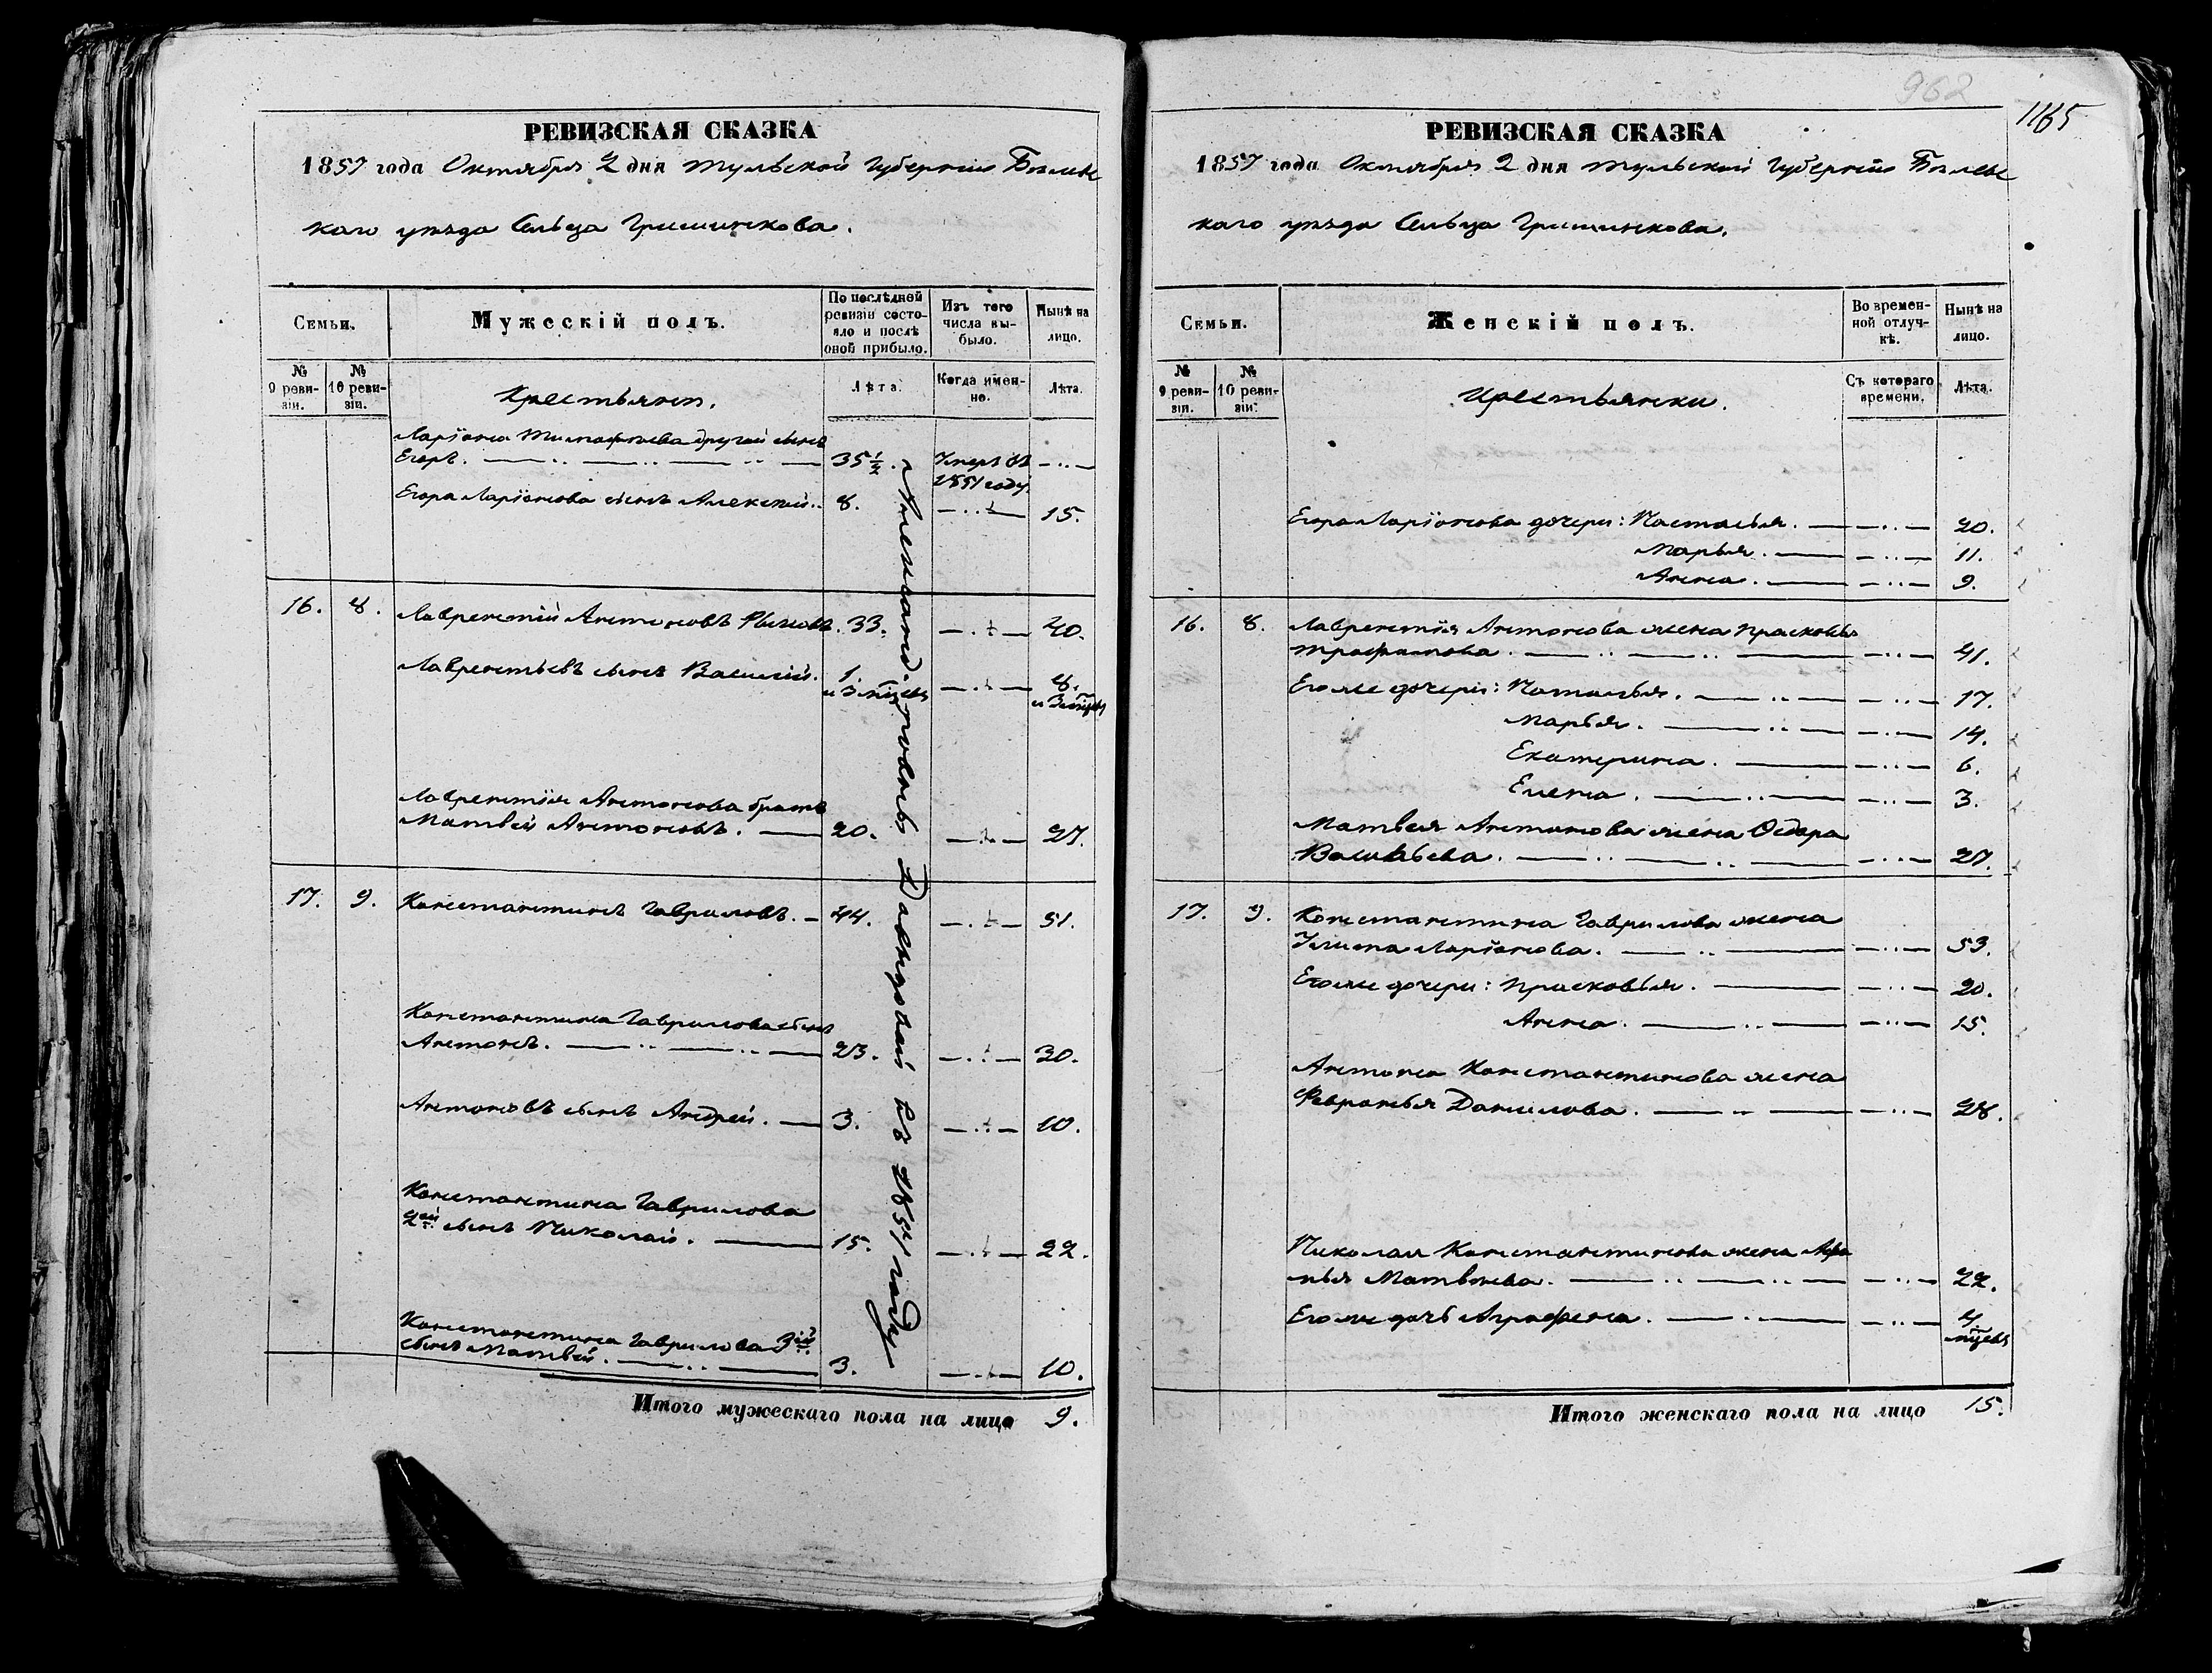 962
1165
РЕВИЗСКАЯ СКАЗКА
1857 года Октября 2 дня Тульской Губернiи Бѣлевс
каго уѣзда Сельца Гришинкова.
Семьи.
Мужескiй полъ.
По послѣдней ревизiи состояло и послѣ оной прибыло.
Изъ того числа выбыло.
Нынѣ на лицо.
№ 9 ревизiи.
№ 10 ревизiи.
Крестьяне.
Лѣта.
Когда именно.
Лѣта.
Ларiона Тимофѣева другой сынъ
Егоръ. 35½. Умеръ въ
1851 году.
Егора Ларiонова сынъ Алексѣй. 8. 15.
16. 8. Лаврентiй Антоновъ 33. 40.
Лаврентьевъ сынъ Василiй. 1. 8.
и 3 мѣсцевъ и 3 мѣсцевъ
Лаврентiя Антонова братъ
Матвѣй Антоновъ. 20. 27.
17. 9. Константинъ Гавриловъ. 44. 51.
Константина Гаврилова сынъ
Антонъ. 23. 30.
Антоновъ сынъ Андрей. 3. 10.
Константина Гаврилова
2ой сынъ Николай. 15. 22.
Константина Гаврилова 3iй
сынъ Матвѣй. 3. 10.
Итого мужескаго пола на лицо 9.
РЕВИЗСКАЯ СКАЗКА
1857 года Октября 2 дня Тульской Губернiи Бѣлевс
каго уѣзда Сельца Гришинкова.
Семьи.
Женскiй полъ.
Во временной отлучкѣ.
Нынѣ на лицо.
№ 9 ревизiи.
№ 10 ревизiи.
Крестьянки.
Съ котораго времени.
Лѣта.
Егора Ларiонова дочери: Настасья. 20.
Марья. 11.
Анна. 9.
16. 8. Лаврентiя Антонова жена Прасковья
Трофимова. 41.
Его же дочери: Наталья. 17.
Марья. 14.
Екатерина. 6.
Елена. 3.
Матвея Антонова жена Ѳедора
Васильева. 27.
17. 9. Константина Гаврилова жена
Улита Ларiонова. 53.
Его же дочери: Прасковья. 20.
Анна. 15.
Антона Константинова жена
Февронья Данилова. 28.
Николая Константинова жена Афи
Матвѣева. 22.
Его же дочь Аграфена. 4
мѣсцевъ
Итого женскаго пола на лицо 15.